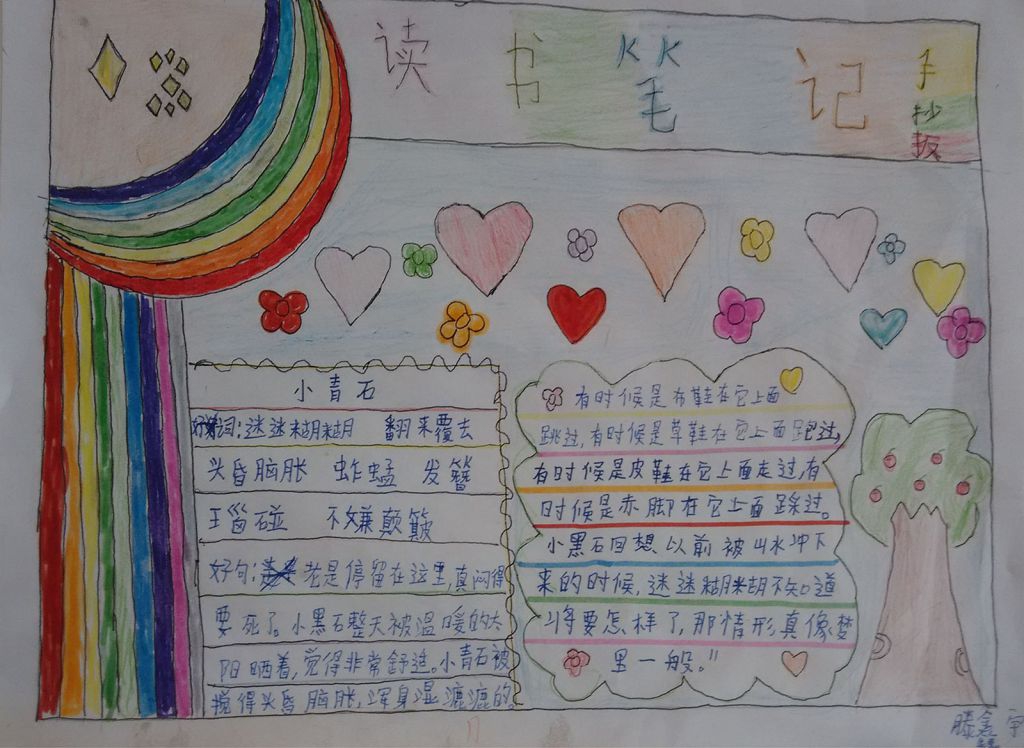 读书笔记
手
抄
报
小青石
好词:迷迷糊糊 翻来覆去
头昏脑胀 蚱蜢 发簪
碰 不嫌颠簸
好句: 老是停留在这里,真闷得
要死了。小黑石整天被温暖的太
阳晒着,觉得非常舒适。小青石被
搅得头昏脑胀,浑身湿漉漉的。
有时候是布鞋在它上面
跳过,有时候是草鞋在它上面跑过,
有时候是皮鞋在它上面走过,有
时候是赤脚在它上面踩过。
小黑石回想以前被山水冲下
来的时候,迷迷糊糊不知道
将要怎样了,那情形真像梦
里一般。"
滕鑫宇